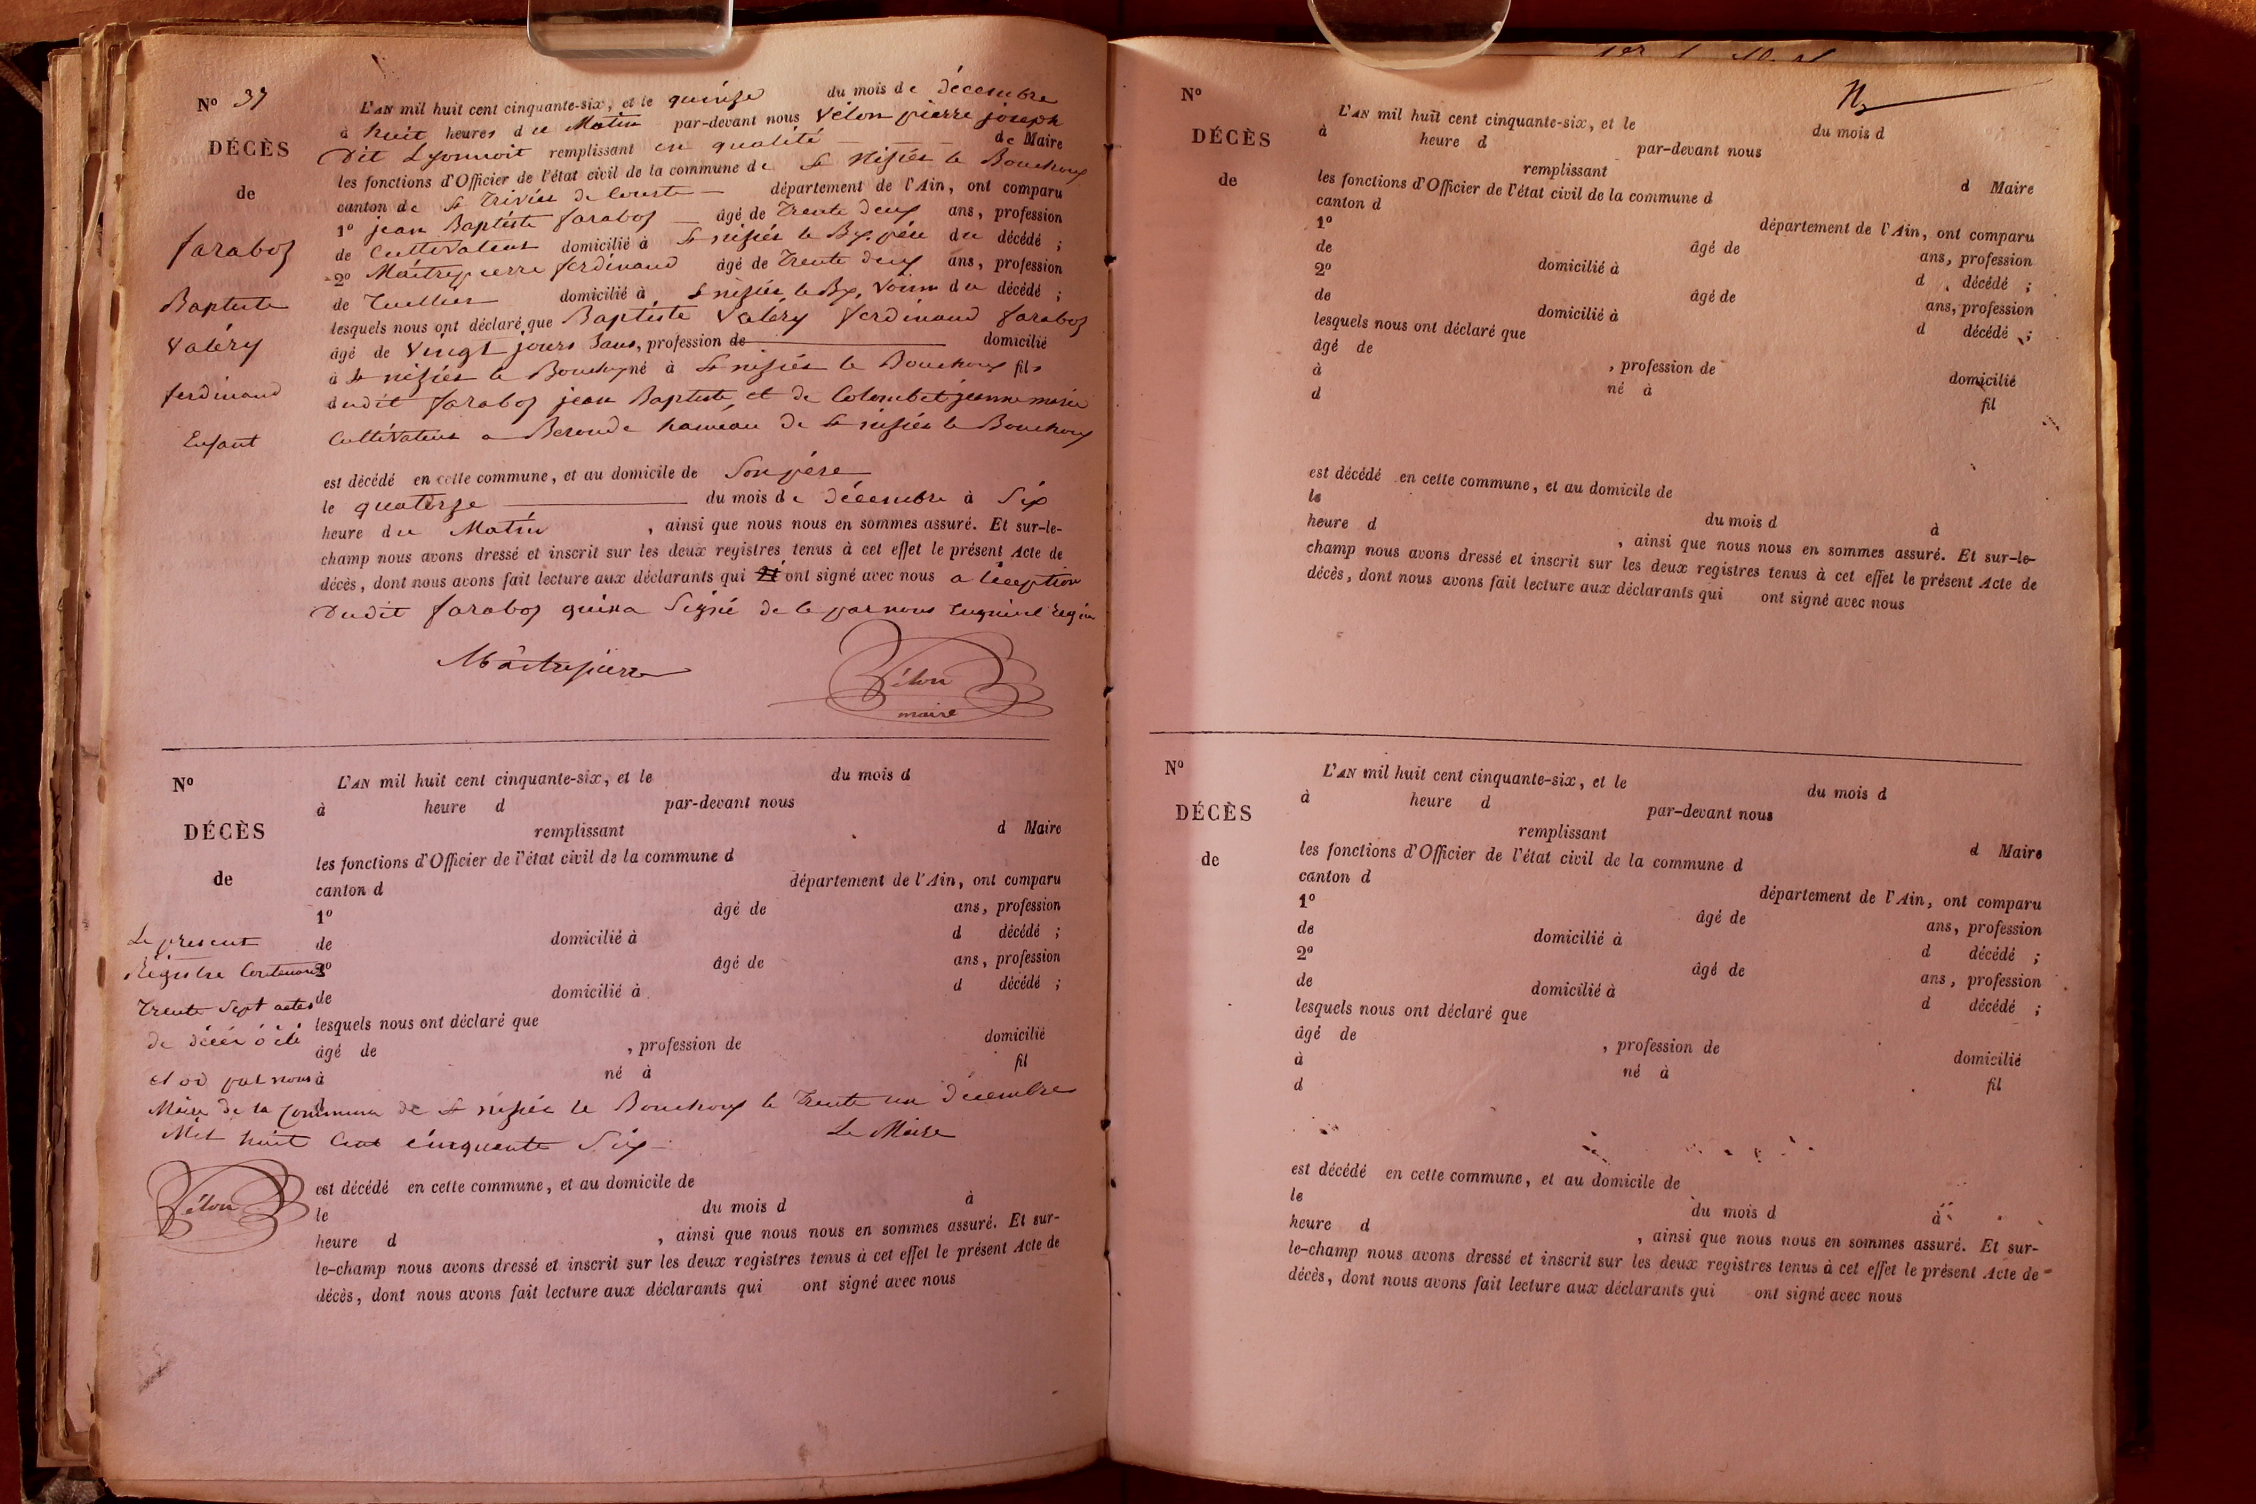 N° 37
DÉCÈS
de
faraboz
Baptiste
Valéry
ferdinand
Enfant
L'AN mil huit cent cinquante-six, et le quinze du mois de décembre
à huit heures du Matin par-devant nous Vélon pierre joseph
Dit Lyonnoit remplissant en qualité de Maire
les fonctions d'Officier de l'état civil de la commune de St Nizier le Bouchoux
canton de St Trivier de Courte département de l'Ain, ont comparu
1° jean Baptiste faraboz âgé de Trente deux ans, profession
de Cultivateur domicilié à St nizier le Bx. père du décédé ;
2° Maitrepierre ferdinand âgé de Trente deux ans, profession
de Tuillier domicilié à St nizier le Bx, Voisin du décédé ;
lesquels nous ont déclaré que Baptiste Valéry ferdinand faraboz
âgé de Vingt jours Sans, profession de domicilié
à St nizier le Bouchoux né à St nizier le Bouchoux fils
dudit faraboz jean Baptiste, et de Colombet jeanne marie
Cultivateurs a Beronde hameau de St nizier le Bouchoux
est décédé en cette commune, et au domicile de Son père
le quatorze du mois de décembre à Six
heure du Matin , ainsi que nous nous en sommes assuré. Et sur-le-
champ nous avons dressé et inscrit sur les deux registres tenus à cet effet le présent Acte de
décès, dont nous avons fait lecture aux déclarants qui ont signé avec nous a l'éxeption
Dudit faraboz qui na Signé de ce par nous
Maitrepierre
Vélon
maire
N°
DÉCÈS
de
L'AN mil huit cent cinquante-six, et le du mois d
à heure d par-devant nous
remplissant d Maire
les fonctions d'Officier de l'état civil de la commune d
canton d département de l'Ain, ont comparu
1° âgé de ans, profession
de domicilié à d décédé ;
2° âgé de ans, profession
de domicilié à d décédé ;
lesquels nous ont déclaré que
âgé de , profession de domicilié
à né à fil
d
Le présent
Régistre Contenant
Trente Sept actes
de décès a été
clos par nous
Maire de la Commune de St nizier le Bouchoux le Trente un Décembre
Mil huit Cent cinquante Six
Le Maire
Vélon
est décédé en cette commune, et au domicile de
le du mois d à
heure d , ainsi que nous nous en sommes assuré. Et sur-
le-champ nous avons dressé et inscrit sur les deux registres tenus à cet effet le présent Acte de
décès, dont nous avons fait lecture aux déclarants qui ont signé avec nous
N°
DÉCÈS
de
L'AN mil huit cent cinquante-six, et le du mois d
à heure d par-devant nous
remplissant d Maire
les fonctions d'Officier de l'état civil de la commune d
canton d département de l'Ain, ont comparu
1° âgé de ans, profession
de domicilié à d décédé ;
2° âgé de ans, profession
de domicilié à d décédé ;
lesquels nous ont déclaré que
âgé de , profession de domicilié
à né à fil
d
est décédé en cette commune, et au domicile de
le du mois d à
heure d , ainsi que nous nous en sommes assuré. Et sur-le-
champ nous avons dressé et inscrit sur les deux registres tenus à cet effet le présent Acte de
décès, dont nous avons fait lecture aux déclarants qui ont signé avec nous
N°
DÉCÈS
de
L'AN mil huit cent cinquante-six, et le du mois d
à heure d par-devant nous
remplissant d Maire
les fonctions d'Officier de l'état civil de la commune d
canton d département de l'Ain, ont comparu
1° âgé de ans, profession
de domicilié à d décédé ;
2° âgé de ans, profession
de domicilié à d décédé ;
lesquels nous ont déclaré que
âgé de , profession de domicilié
à né à fil
d
est décédé en cette commune, et au domicile de
le du mois d à
heure d , ainsi que nous nous en sommes assuré. Et sur-
le-champ nous avons dressé et inscrit sur les deux registres tenus à cet effet le présent Acte de
décès, dont nous avons fait lecture aux déclarants qui ont signé avec nous